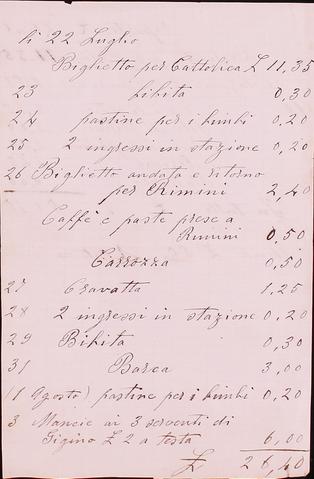 li 22 Luglio
Biglietto per Cattolica £ 11,35
23 bibita 0,30
24 pastine per i bimbi 0,20
25 2 ingressi in stazione 0,20
26 Biglietto andata e ritorno
per Rimini 2,40
Caffè e paste prese a
Rimini 0,50
Carrozza 0,50
27 Cravatta 1,25
28 2 ingressi in stazione 0,20
29 Bibita 0,30
31 Barca 3,00
(1 Agosto) pastine per i bimbi 0,20
3 Mancie ai 3 serventi di
Gigino £ 2 a testa 6,00
£ 26,40